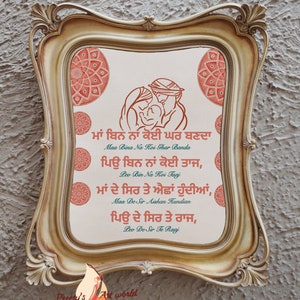 ਮਾਂ ਬਿਨ ਨਾਂ ਕੋਈ ਘਰ ਬਣਦਾ
Maa Bina Na Koi Ghar Banda
ਪਿਉ ਬਿਨ ਨਾਂ ਕੋਈ ਤਾਜ,
Peo Bin Na Koi Taaj
ਮਾਂ ਦੇ ਸਿਰ ਤੇ ਐਛਾਂ ਹੁੰਦੀਆਂ,
Maa De Sir Aishan Hundian
ਪਿਉ ਦੇ ਸਿਰ ਤੇ ਰਾਜ,
Peo De Sir Te Raaj
Art world